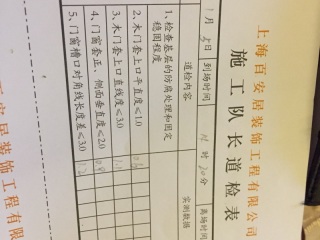 上海百安居装饰工程有限公司
施工队长道检表
月5日 到场时间 时30分 离场时间
道检内容 实测数据
1、检查基层的防腐处理和固定
稳固程度
2、木门套上口平直度≤1.0
3、木门套上口直线度≤3.0
4、门窗套正、侧面垂直度≤2.0
5、门窗槽口对角线长度差≤3.0
饰工程有限